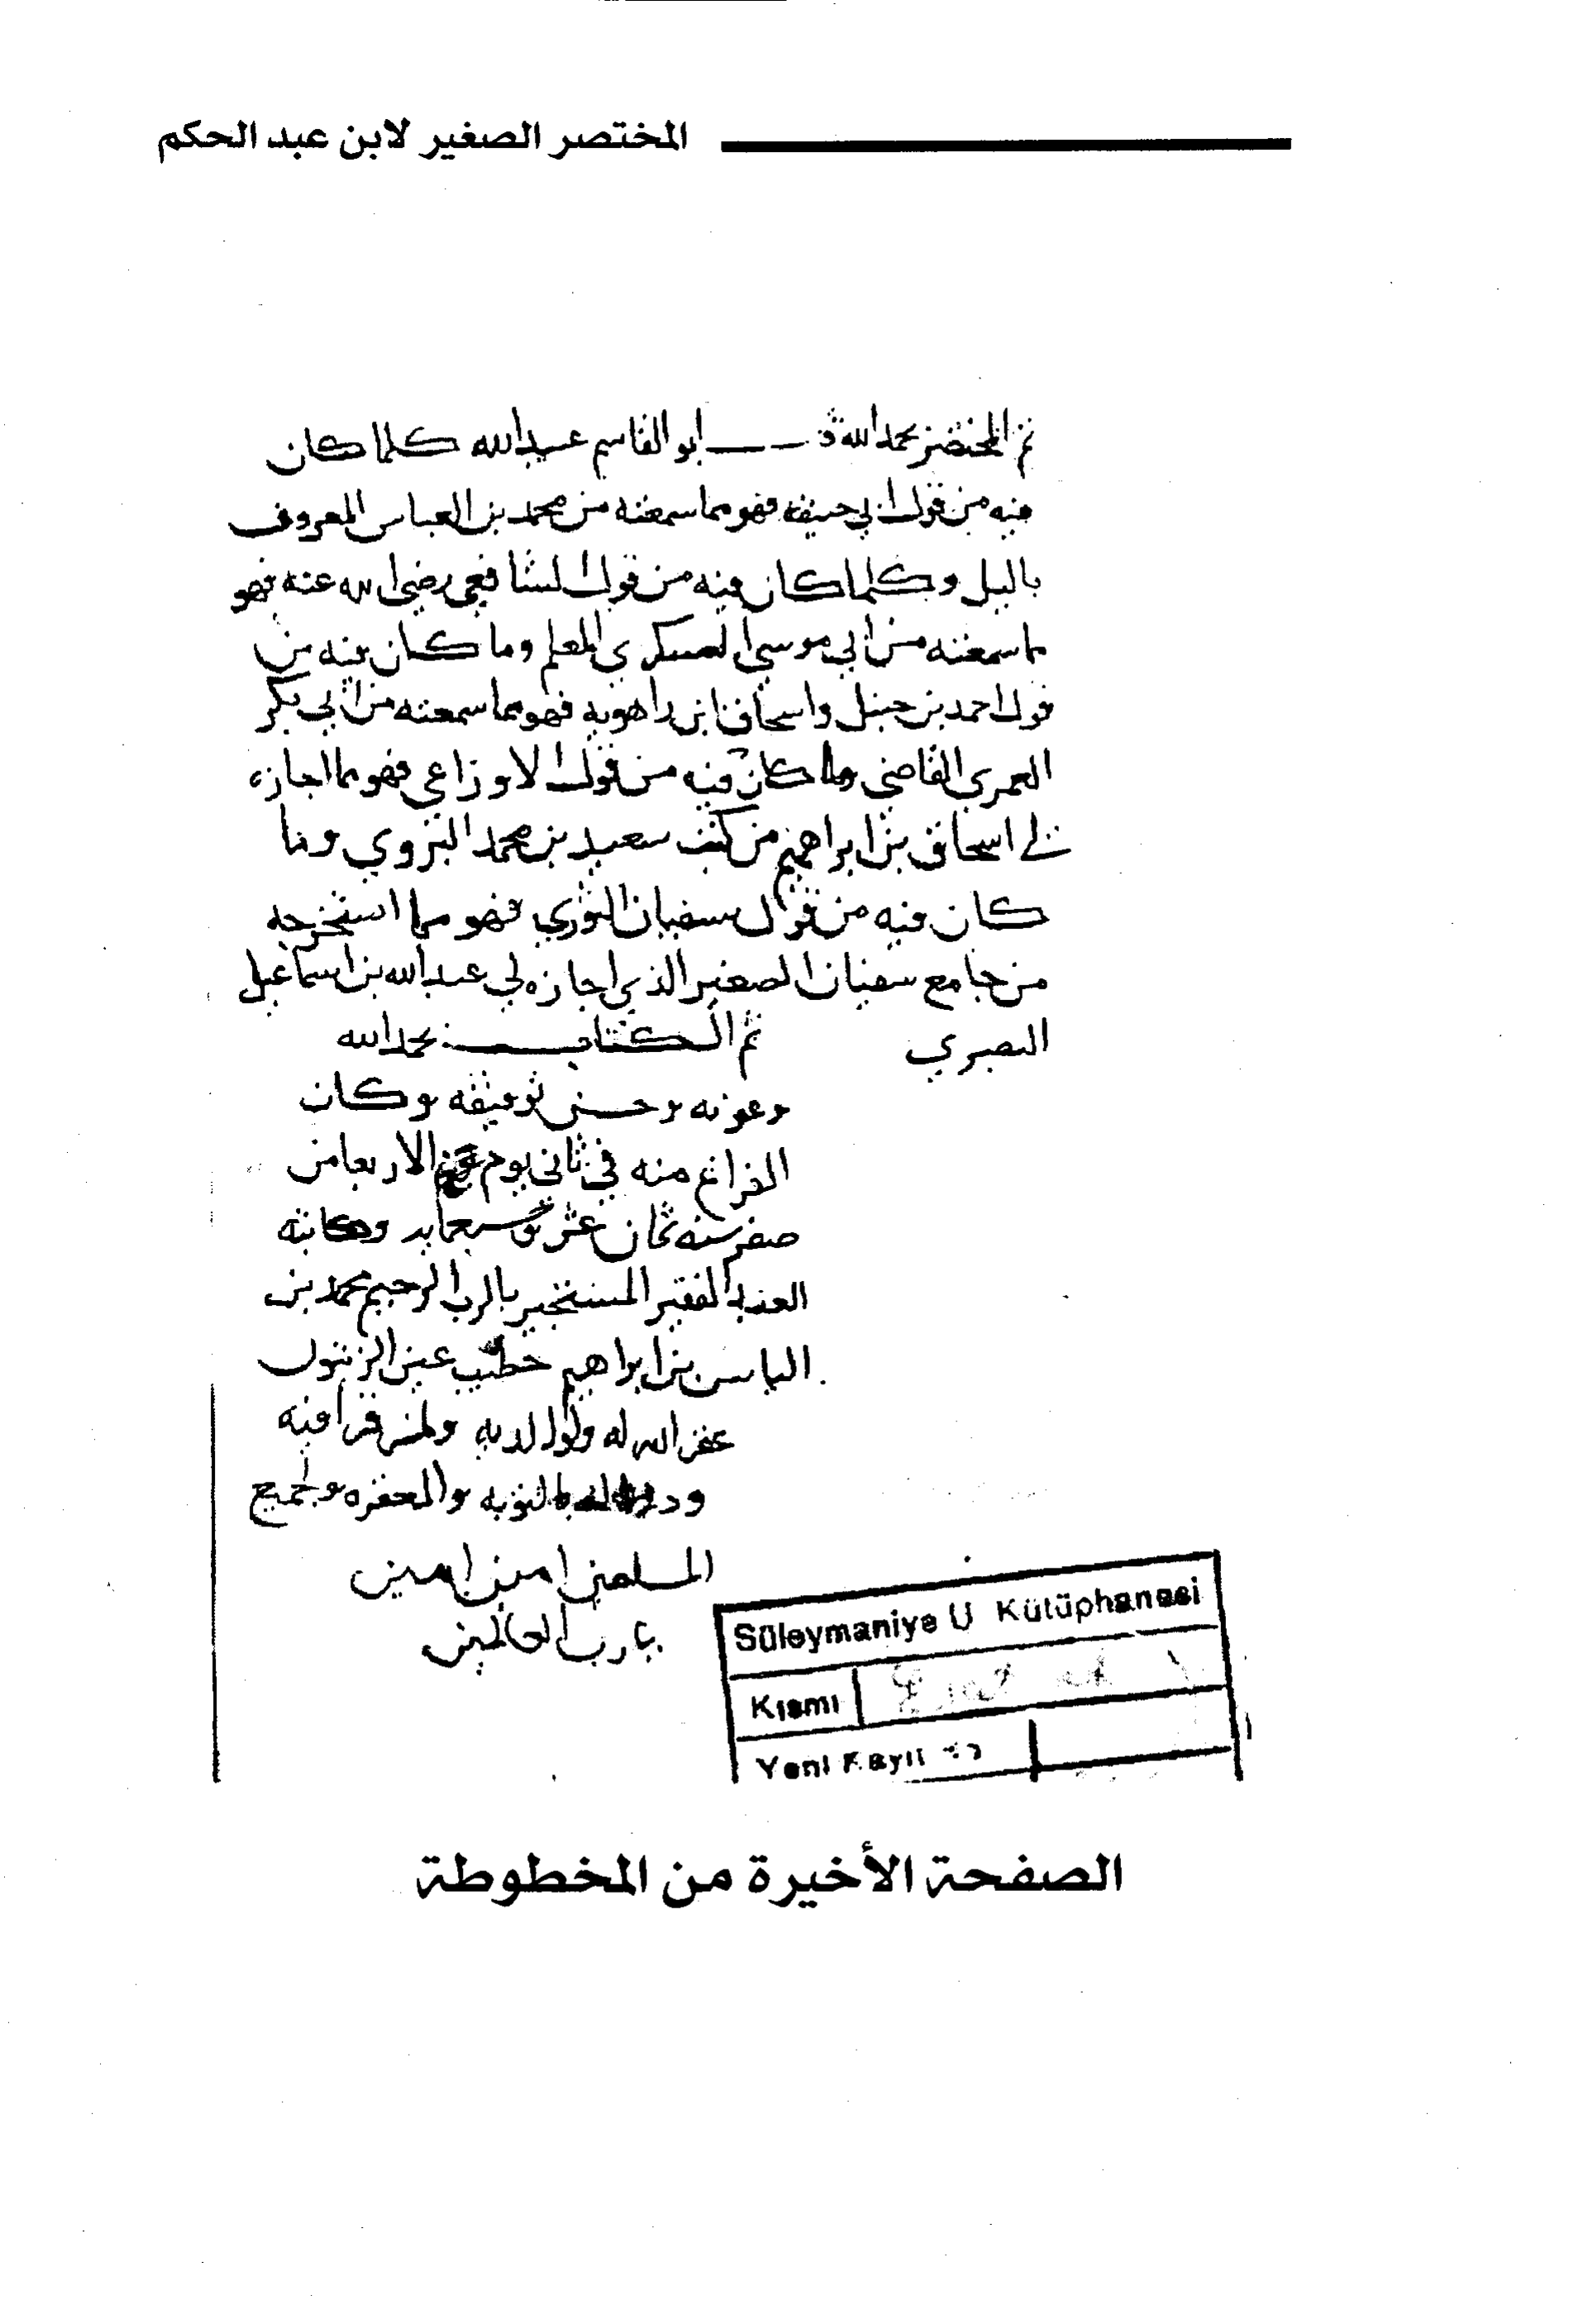 المختصر الصغير لابن عبد الحكم
تم المختصر بحمد الله قـــــال ابو القاسم عبيد الله كلما كان
فيه من قول ابي حنيفه فهو مما سمعته من محمد بن العباس المعروف
بالبل وكلما كان فيه من قول الشافعي رضي الله عنه فهو
ما سمعته من ابي موسى العسكري المعلم وما كان فيه من
قول احمد بن حنبل واسحاق ابن راهويه فهو مما سمعته من ابي بكر
العمري القاضي وما كان فيه من قول الاوزاعي فهو مما اجازه
لي اسحاق بن ابراهيم من كتب سعيد بن محمد البيروي وما
كان فيه من قول سفيان الثوري فهو مما استخرجه
من جامع سفيان الصغير الذي اجازه لي عبد الله بن اسماعيل
البصري تم الكتاب بحمد الله
وعونه وحسن توفيقه وكان
الفراغ منه في ثاني يوم الاربعا من
صفر سنه ثمان عشر وسبعمايه وكاتبه
العبد الفقير المستجير بالرب الرحيم محمد بن
الياس بن ابراهيم خطيب عين الزيتون
غفر الله له ولوالديه ولمن قرا فيه
ودعا له بالتوبه والمغفره ولجميع
المسلمين امين امين
يا رب العالمين
Süleymaniye U Kütüphanesi
Kısmı
Yeni Kayıt No
الصفحة الأخيرة من المخطوطة